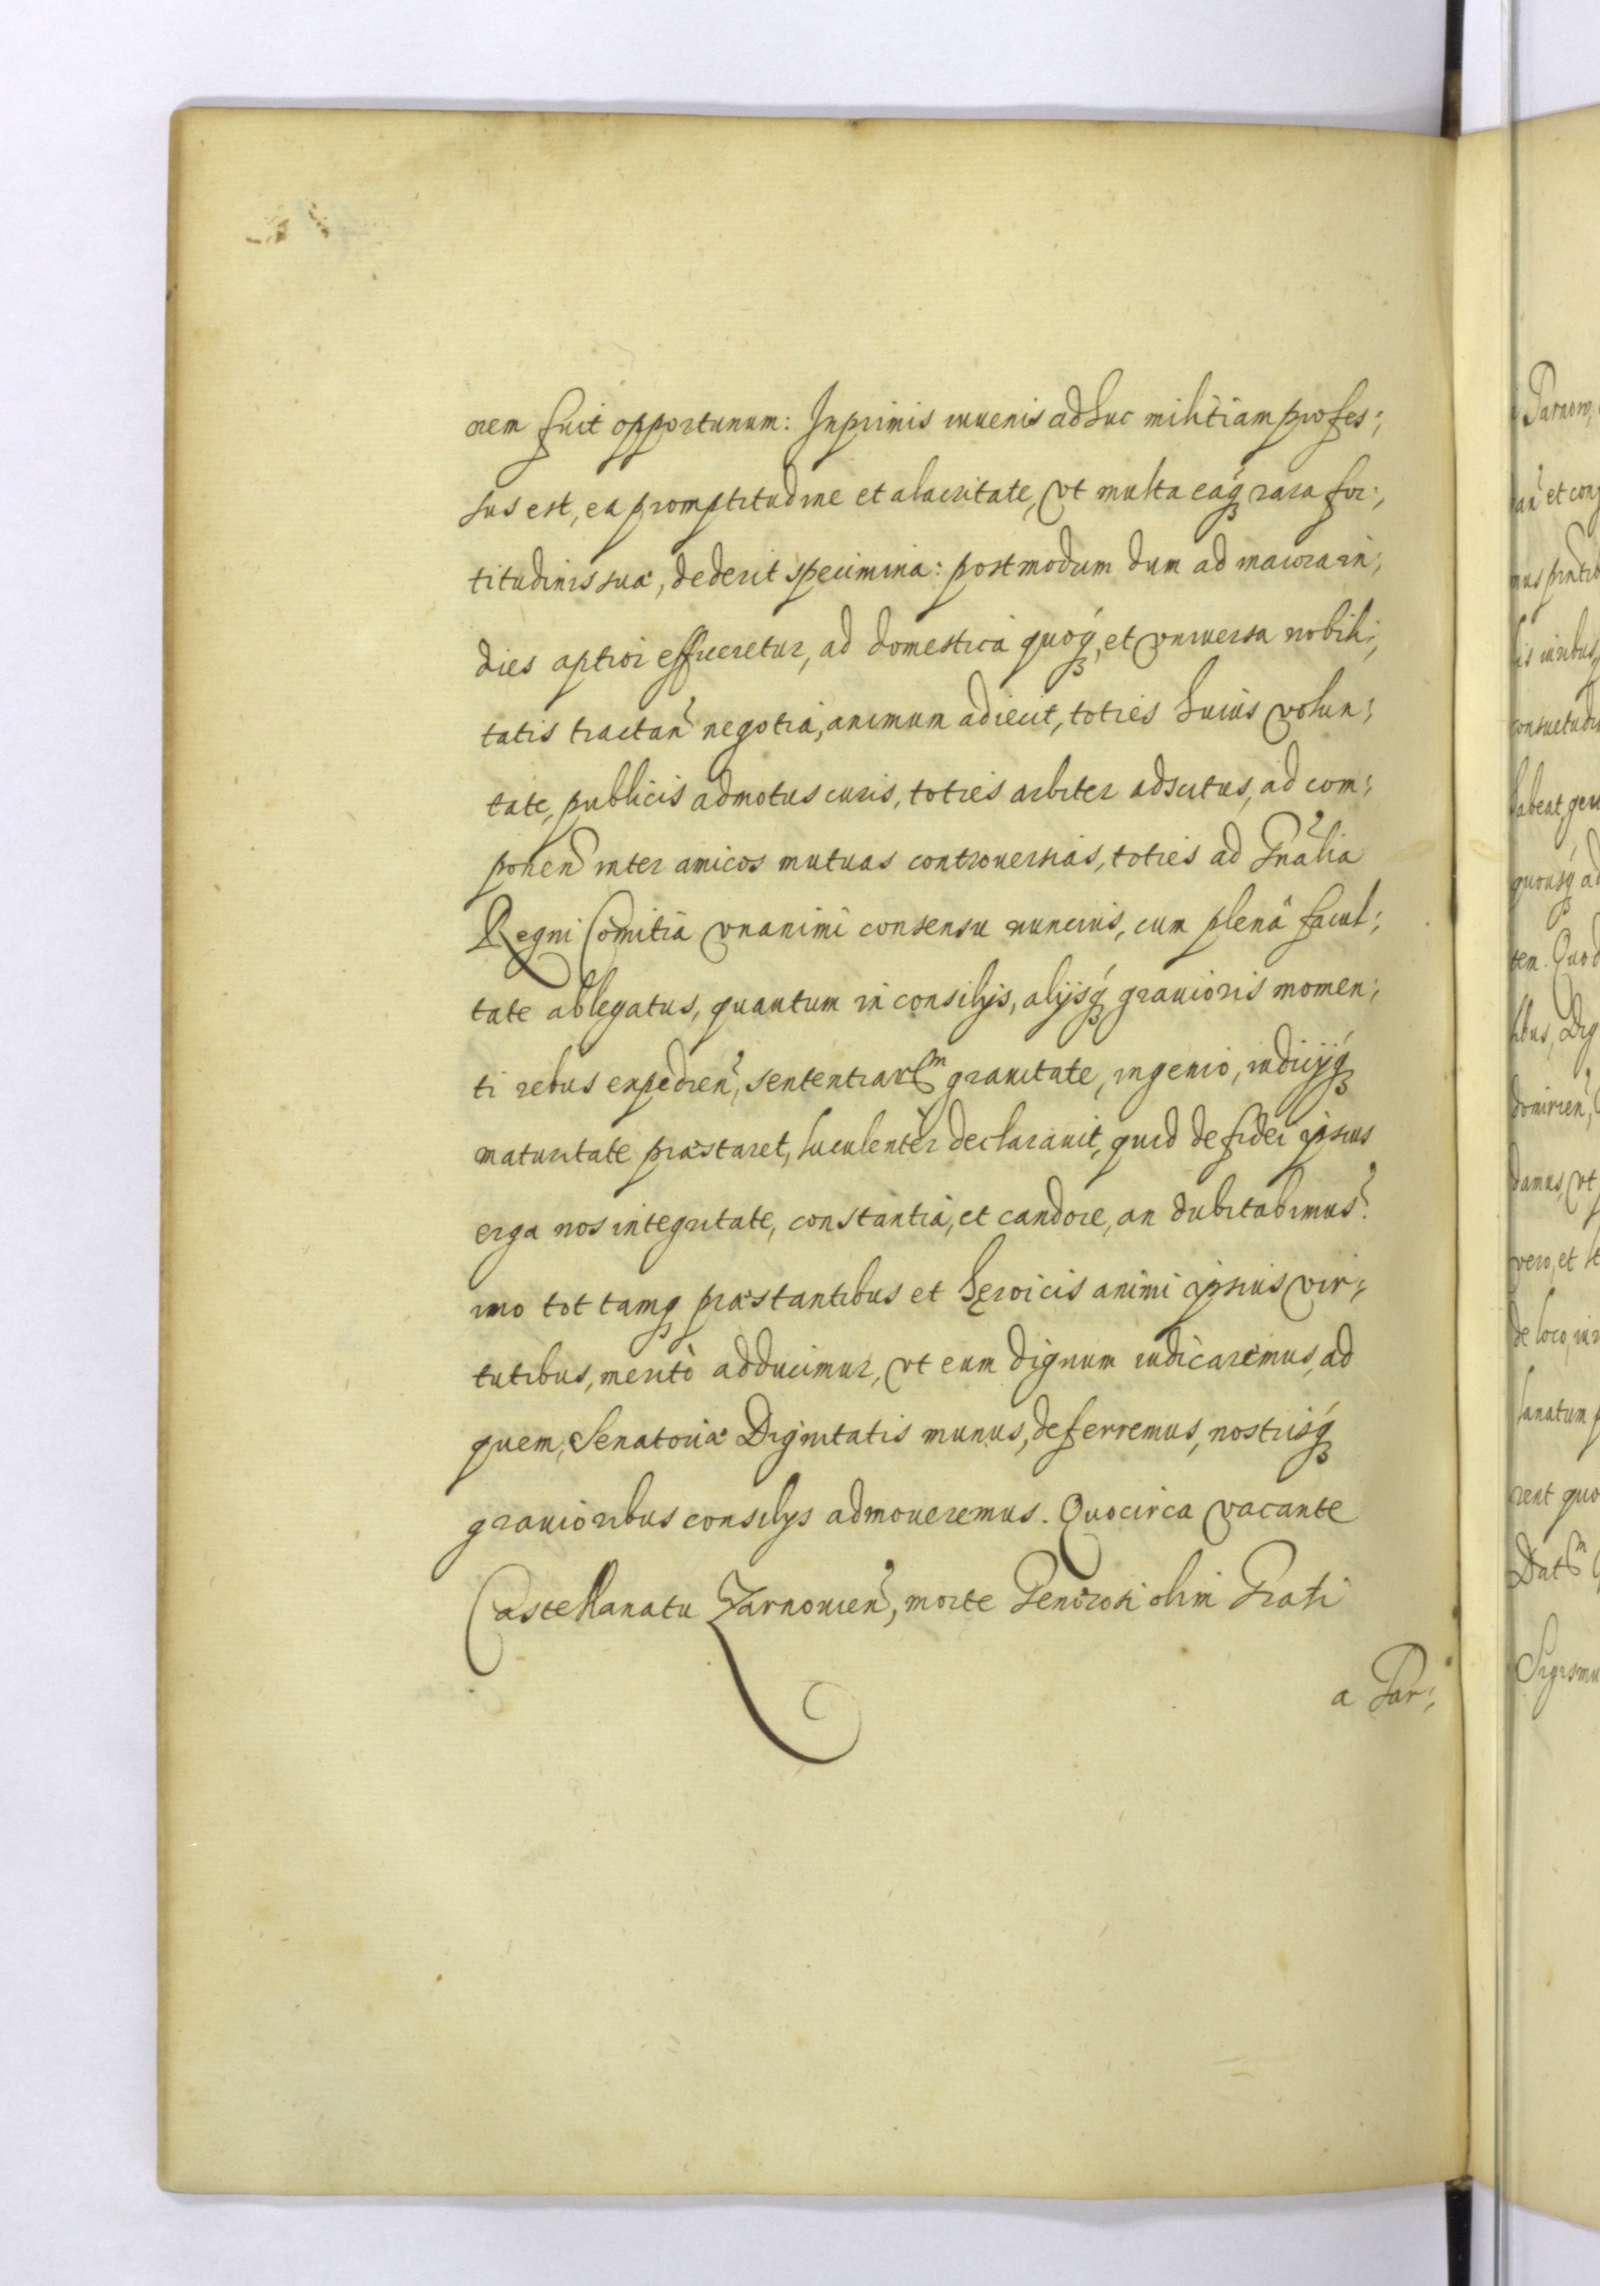 rem fuit opportunum: Inprimis iuuenis adhuc militiam profes:,
sus est, ea promptitudine et alacritate, vt multa eaq́ꝫ rara for:,
titudinis suæ, dederit specimina: postmodum dum ad maiora in:,
dies aptior efficeretur, ad domestica quoq́ꝫ, et vniuersa nobili:,
tatis tractan̄ negotia, animum adiecit, toties huius volun:,
tate, publicis admotus curis, toties arbiter adscitus, ad com:,
ponen̄ inter amicos mutuas controuersias, toties ad Gn̄alia
Regni Comitia vnanimi consensu nuncius, cum plenâ facul:,
tate ablegatus, quantum in consilijs, alijsq́ꝫ grauioris momen:,
ti rebus expedien̄, sententiarum grauitate, ingenio, iudicijq́ꝫ
maturitate præstaret, luculenter declarauit, quid de fidei ipsius
erga nos integritate, constantia, et candore, an dubitabimus?
imo tot tamqꝫ præstantibus et hęroicis animi ipsius vir:,
tutibus, meritò adducimur, vt eum dignum iudicaremus, ad
quem, Senatoriæ Dignitatis munus, deferremus, nostrisq́ꝫ
grauioribus consilys admoueremus. Quocirca vacante
Castellanatu Zarnouien̄, morte Generosi olim Grati
a Tar:,
Tarnow,